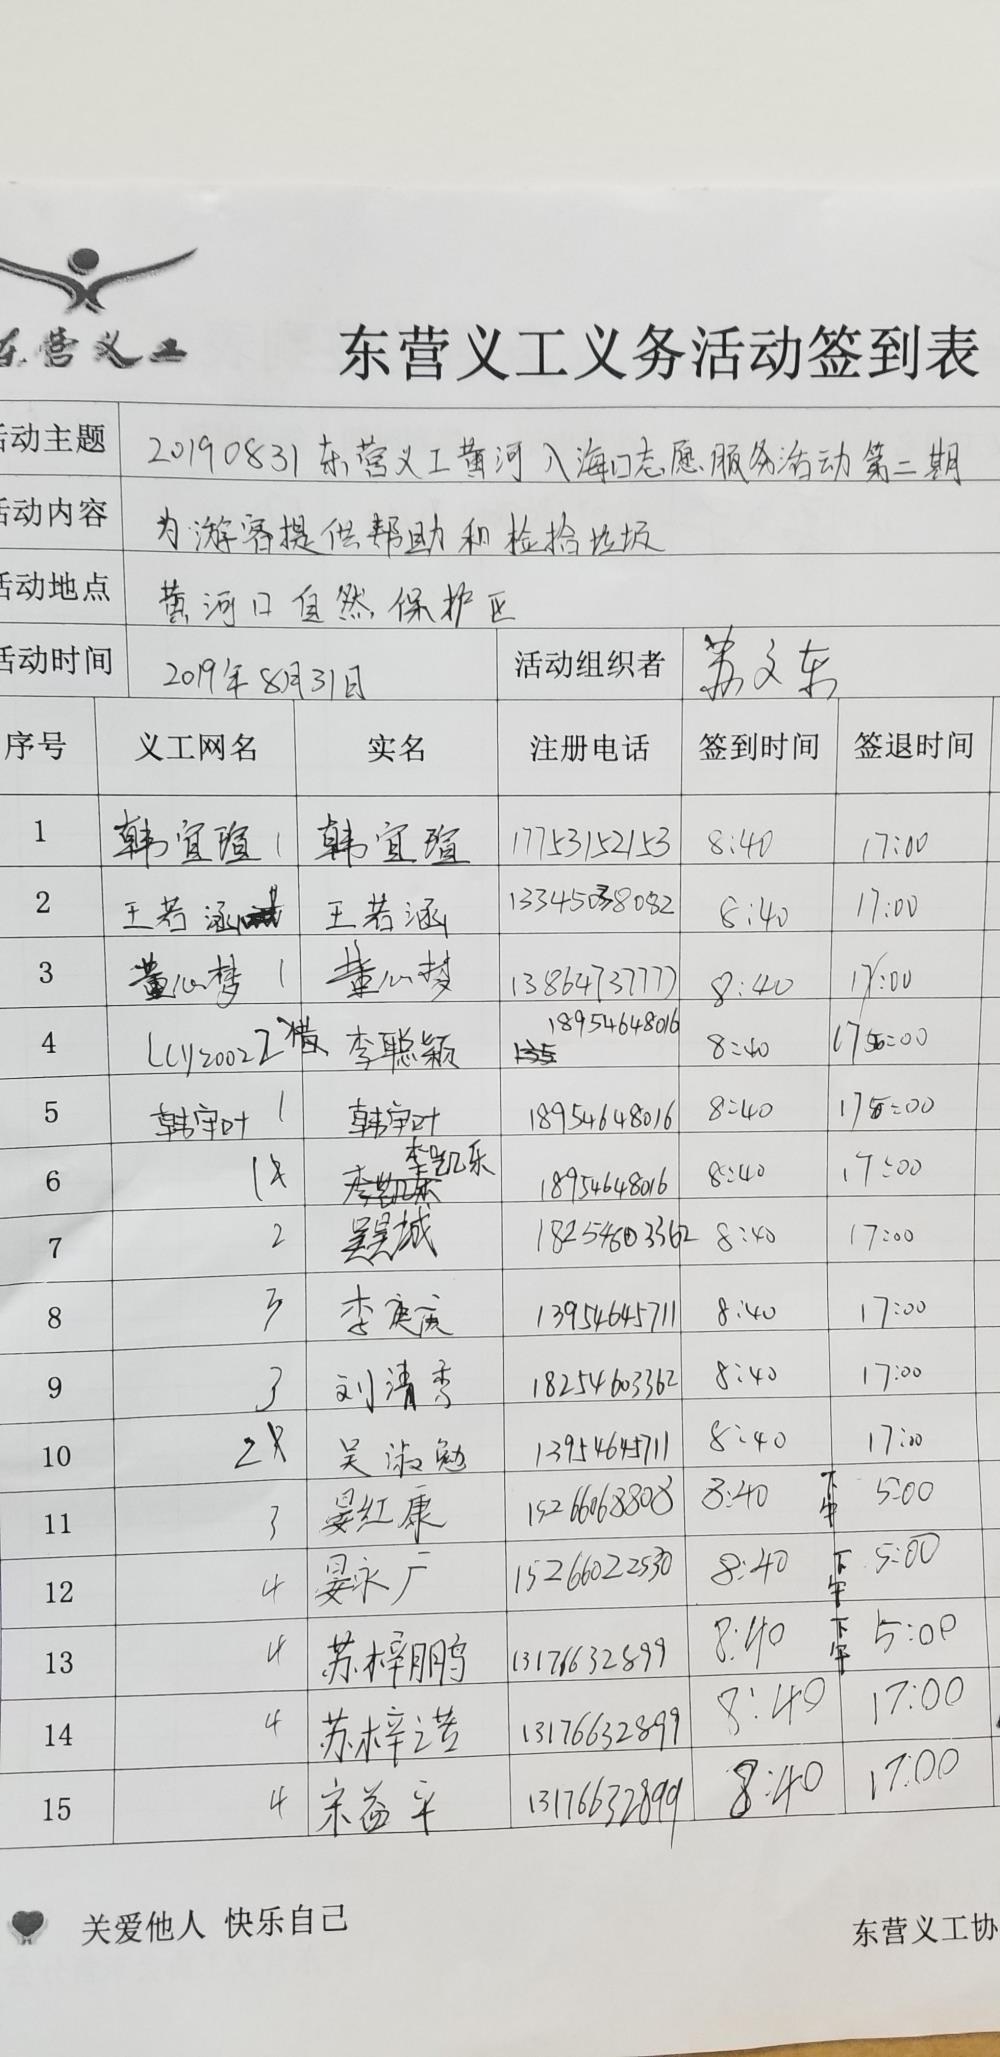 东营义工
东营义工义务活动签到表
活动主题 20190831东营义工黄河入海口志愿服务活动第二期
活动内容 为游客提供帮助和检拾垃圾
活动地点 黄河口自然保护区
活动时间 2019年8月31日 活动组织者 苏文东
序号 义工网名 实名 注册电话 签到时间 签退时间
1 韩宜瑄 1 韩宜瑄 17753152153 8:40 17:00
2 王若涵 王若涵 13345038082 8:40 17:00
3 董心梦 1 董心梦 13864737777 8:40 17:00
4 李聪颖 18954648016 8:40 17:00
5 韩宇叶 1 韩宇叶 18954648016 8:40 17:00
6 1 李凯乐 18954648016 8:40 17:00
7 2 吴昊城 18254603362 8:40 17:00
8 3 李庚 13954645711 8:40 17:00
9 3 刘清秀 18254603362 8:40 17:00
10 2 吴淑勉 13954645711 8:40 17:00
11 3 晏红康 15266068808 8:40 下午 5:00
12 4 晏永广 15266022530 8:40 下午 5:00
13 4 苏梓鹏 13176632899 8:40 下午 5:00
14 4 苏梓浩 13176632899 8:40 17:00
15 4 宋益平 13176632899 8:40 17:00
关爱他人 快乐自己
东营义工协